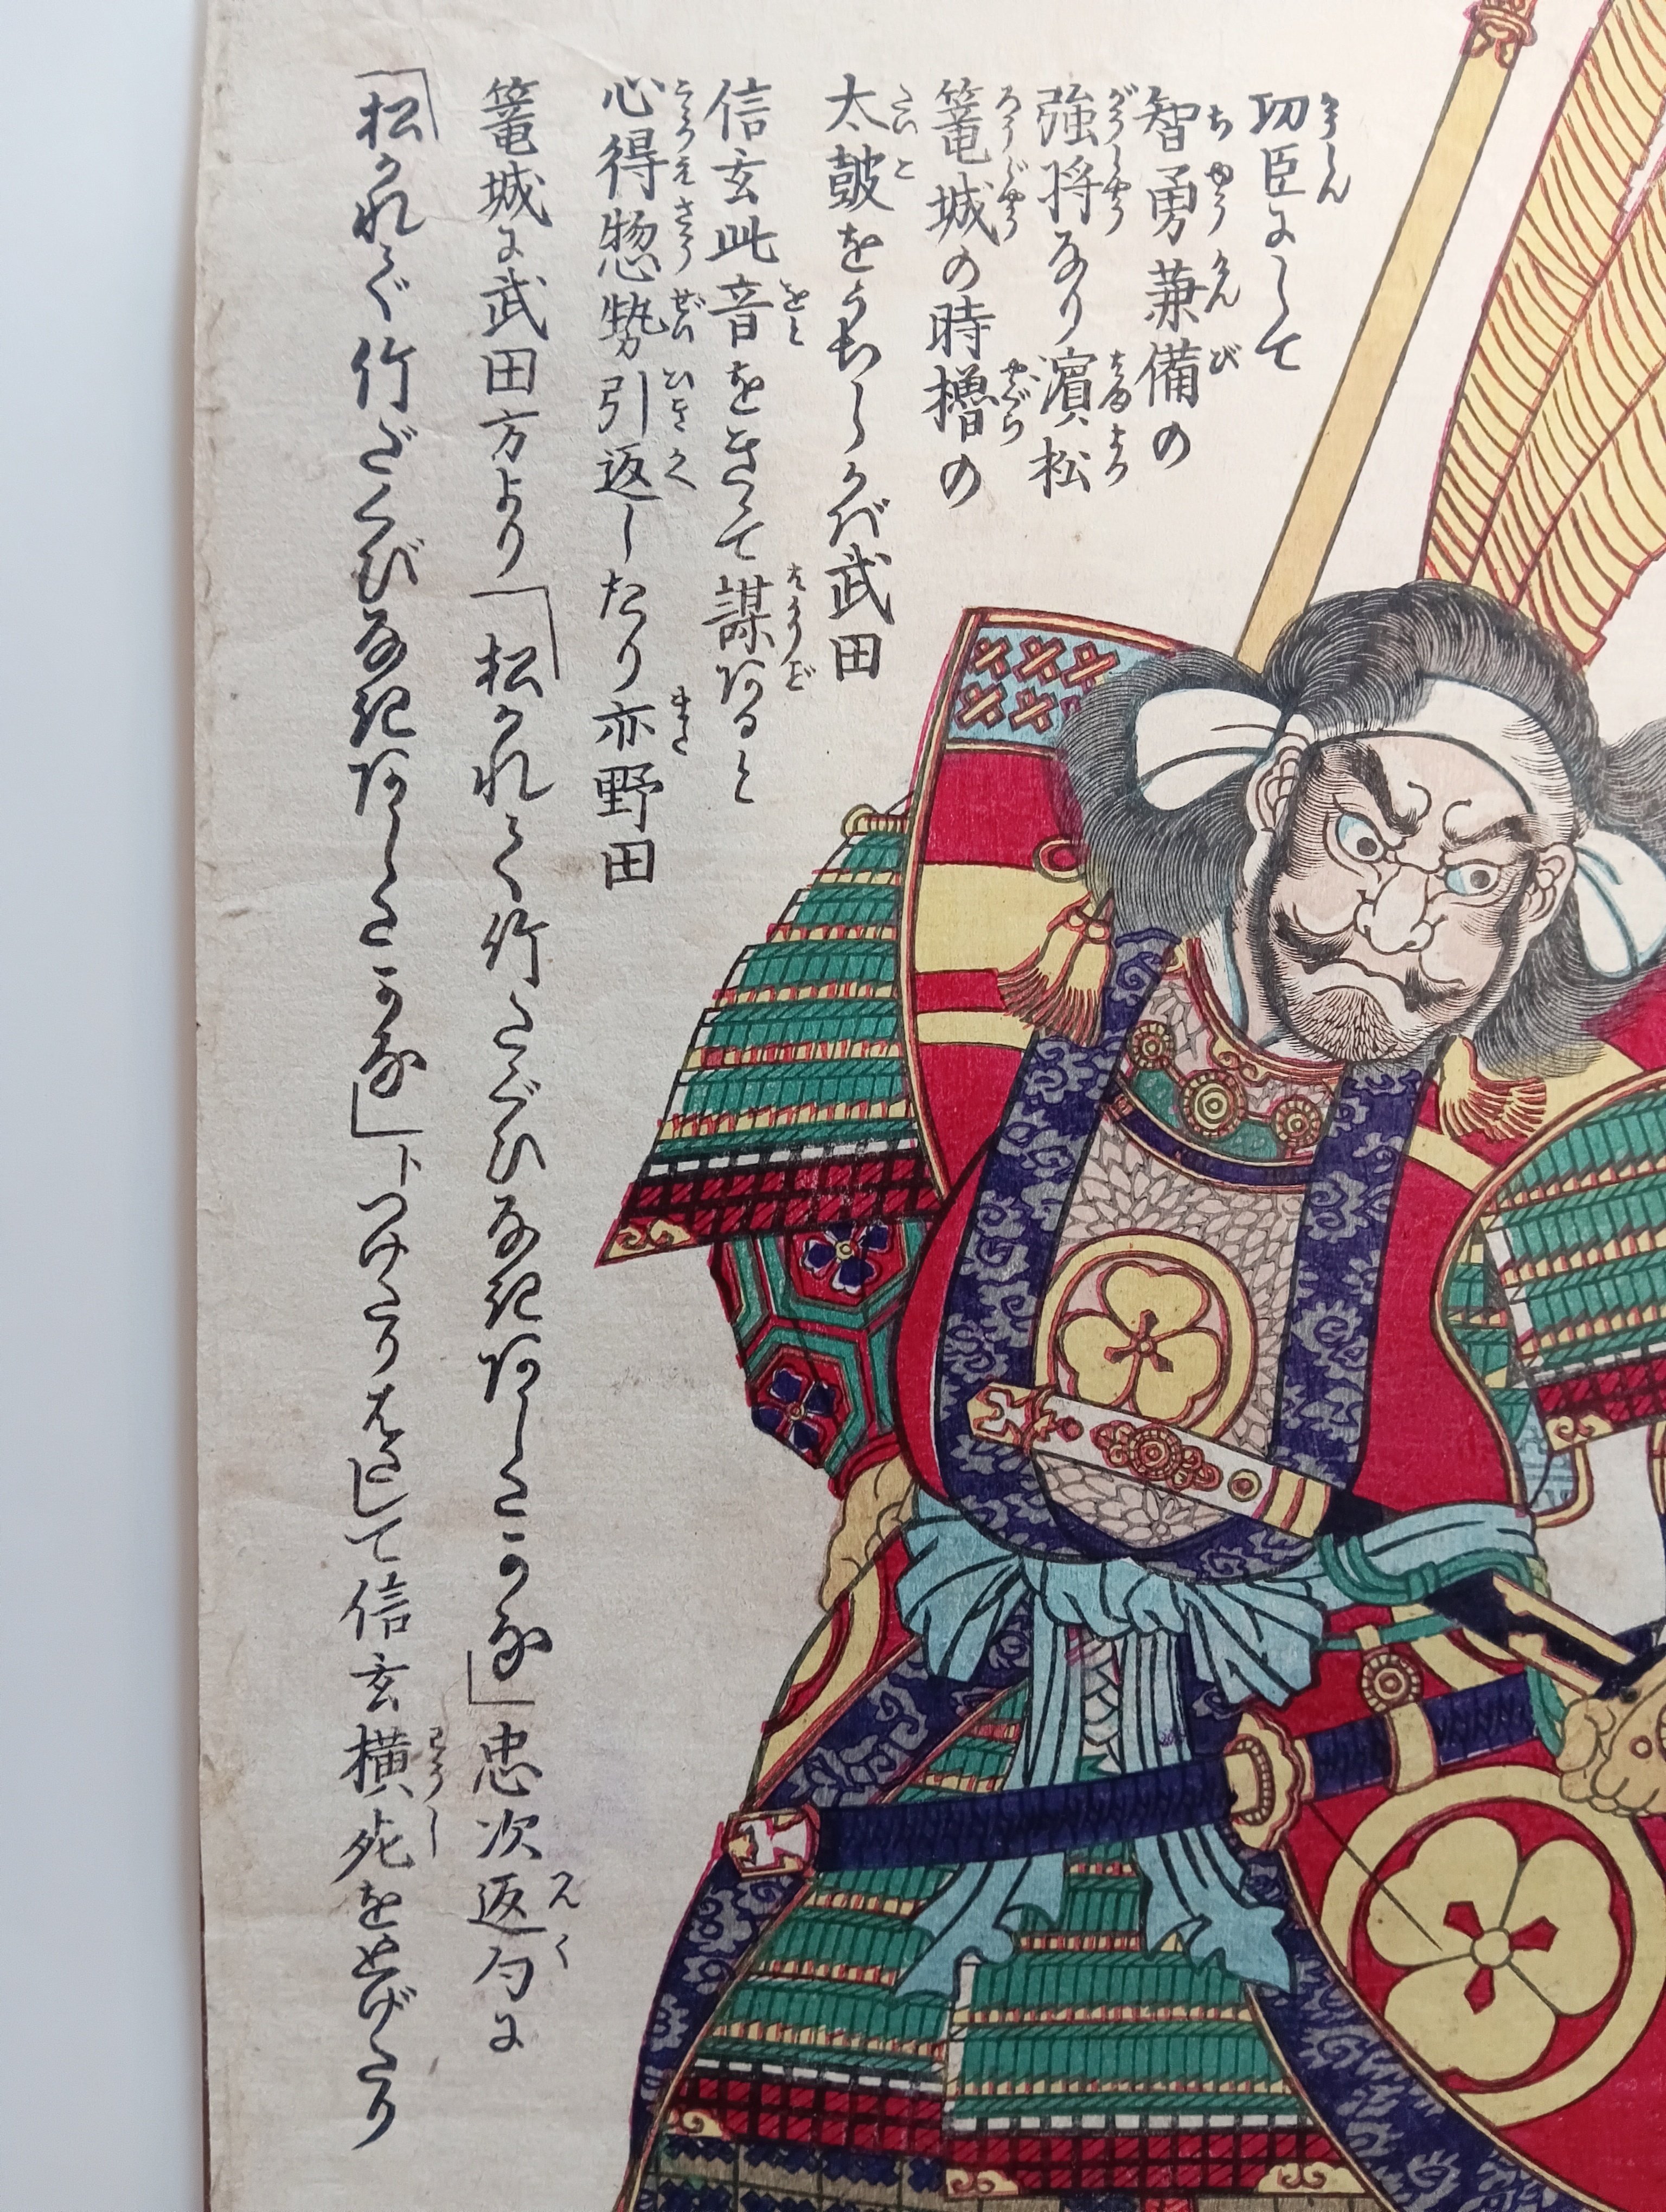 功臣にして
智勇兼備の
強将なり濱松
篭城の時櫓の
太皷をうちしかバ武田
信玄此音をきゝて謀あると
心得惣勢引返したり亦野田
篭城に武田方より「松かれて竹たぐひなきあしたかな」忠次返句に
「松かれで竹だくびなきあしたかな」トつけたりはたして信玄横死をとげたり